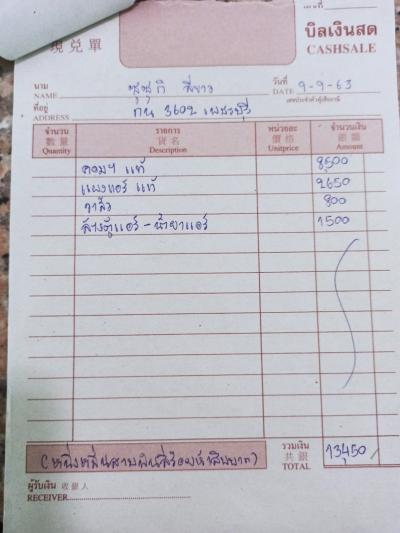 เลขที่
現兌單 บิลเงินสด
CASHSALE
นาม
NAME ซูซูกิ สีขาว วันที่ DATE 9-9-63
เลขประจำตัวผู้เสียภาษี
ที่อยู่
ADDRESS กน 3602 เพชรบุรี
จำนวน รายการ หน่วยละ จำนวนเงิน
數量 貨名 價格 銀額
Quantity Description Unitprice Amount
คอมฯ แท้ 8500
แผงแอร์ แท้ 2650
วาล์ว 800
ล้างตู้แอร์ - น้ำยาแอร์ 1500
รวมเงิน
共銀
TOTAL 13,450
(หนึ่งหมื่นสามพันสี่ร้อยห้าสิบบาท)
ผู้รับเงิน 收銀人
RECEIVER